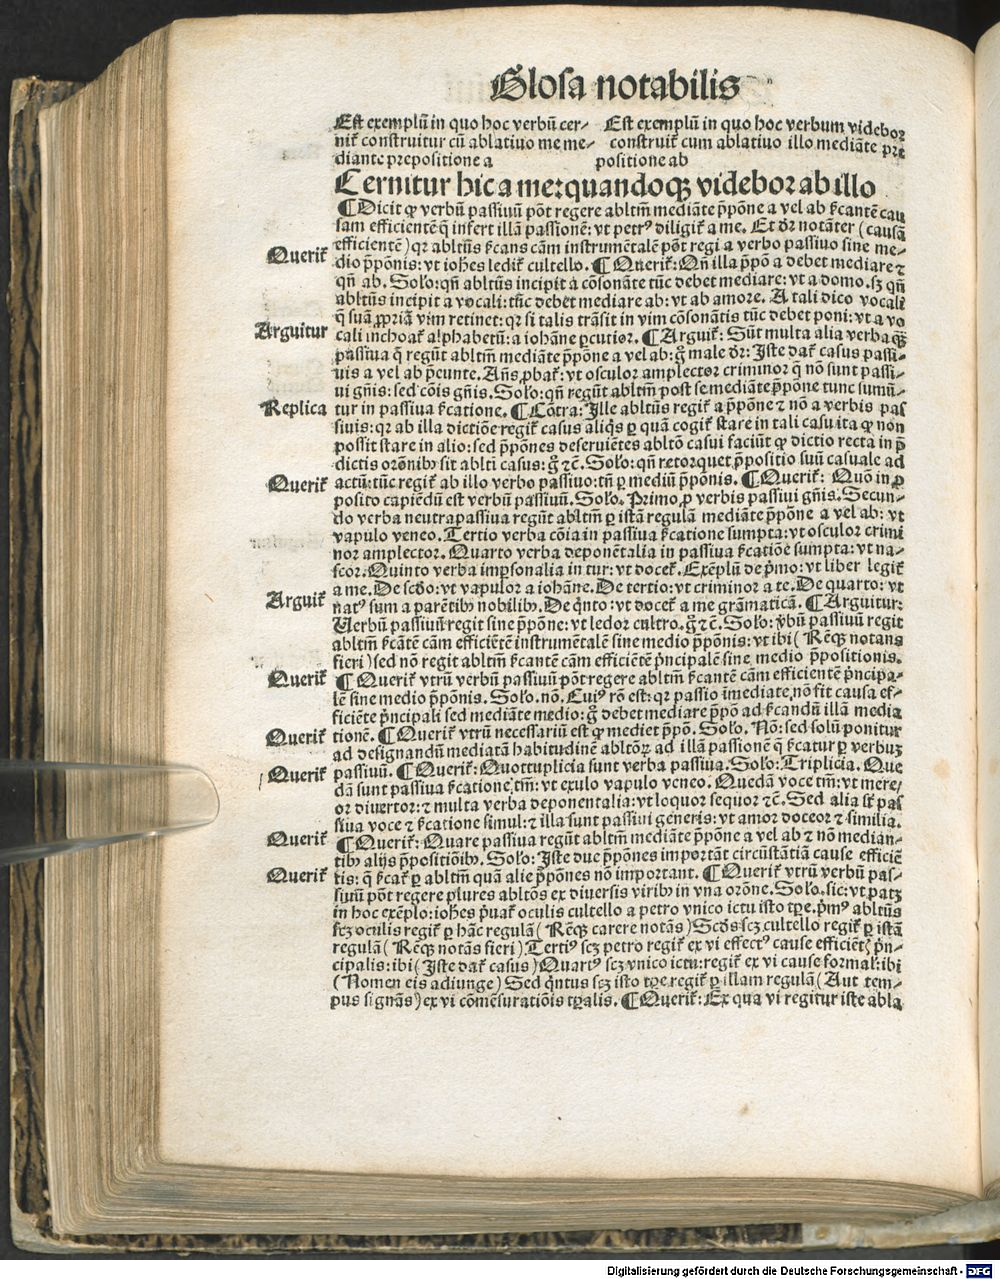 Glosa notabilis
Est exemplū in quo hoc verbū cer-
nit̄ construitur cū ablatiuo me me-
diante prepositione a
Est exemplū in quo hoc verbum videbor
construit̄ cum ablatiuo illo mediāte pre
positione ab
Cernitur hic a me: quandoqꝫ videbor ab illo
¶ Dicit ꝙ verbū passiuū pōt regere abltm̄ mediāte p̄pōne a vel ab ſcantē cau
sam efficientē q̄ infert illā passionē: vt petrꝰ diligit̄ a me. Et dr̄ notāter (causā
efficientē) qꝛ abltūs ſcans cām instrumētalē pōt regi a verbo passiuo sine me-
Querit̄
dio p̄pōnis: vt ioħes ledit̄ cultello. ¶ Querit̄: Qn̄ illa p̄pō a debet mediare ⁊
qn̄ ab. Solo: qn̄ abltūs incipit a cōsonāte tūc debet mediare: vt a domo. sꝫ qn̄
abltūs incipit a vocali: tūc debet mediare ab: vt ab amore. A tali dico vocali
q̄ suā ꝓpriā vim retinet: qꝛ si talis trāsit in vim cōsonātis tūc debet poni: vt a vo
Arguitur
cali inchoat̄ alphabetū: a iohāne ꝑcutior. ¶ Arguit̄: Sūt multa alia verba qꝫ
passiua q̄ regūt abltm̄ mediāte p̄pōne a vel ab: g̊ male dr̄: Iste dat̄ casus passi-
uis a vel ab p̄eunte. Añs ꝓbat̄: vt osculor amplector criminor q̄ nō sunt passi-
ui gn̄is: sed cōis gn̄is. Solo: qn̄ regūt abltm̄ post se mediāte p̄pōne tunc sumū-
Replica
tur in passiua ſcatione. ¶ Cōtra: Ille abltūs regit̄ a p̄pōne ⁊ nō a verbis pas
siuis: qꝛ ab illa dictiōe regit̄ casus aliqs ꝑ quā cogit̄ stare in tali casu ita ꝙ non
possit stare in alio: sed p̄pōnes deseruiētes abltō casui faciūt ꝙ dictio recta in p̄
dictis orōnibꝰ sit ablti casus: g̊ ⁊c̄. Solo: qn̄ retorquet p̄positio suū casuale ad
Querit̄
actū: tūc regit̄ ab illo verbo passiuo: tn̄ ꝑ mediū p̄pōnis. ¶ Querit̄: Quō in ꝓ
posito capiēdū est verbū passiuū. Solo. Primo ꝓ verbis passiui gn̄is. Secun-
do verba neutrapassiua regūt abltm̄ ꝑ istā regulā mediāte p̄pōne a vel ab: vt
vapulo veneo. Tertio verba cōia in passiua ſcatione sumpta: vt osculor crimi
nor amplector. Quarto verba deponētalia in passiua ſcatiōe sumpta: vt na-
scor. Quinto verba imꝑsonalia in tur: vt docet̄. Exēplū de p̄mo: vt liber legit̄
a me. De scdo: vt vapulor a iohāne. De tertio: vt criminor a te. De quarto: vt
Arguit̄
natꝰ sum a parētibꝰ nobilibꝰ. De q̄nto: vt docet̄ a me grāmaticā. ¶ Arguitur:
Verbū passiuū regit sine p̄pōne: vt ledor cultro. g̊ ⁊c̄. Solo: v̄bū passiuū regit
abltm̄ ſcātē cām efficiētē instrumētalē sine medio p̄pōnis: vt ibi (Rēqꝫ notans
fieri) sed nō regit abltm̄ ſcantē cām efficiētē p̄ncipalē sine medio p̄positionis.
Querit̄
¶ Querit̄ vtrū verbū passiuū pōt regere abltm̄ ſcantē cām efficientē p̄ncipa-
lē sine medio p̄pōnis. Solo. nō. Cuiꝰ rō est: qꝛ passio īmediate nō fit causa ef-
ficiēte p̄ncipali sed mediāte medio: g̊ debet mediare p̄pō ad ſcandū illā media
Querit̄
tionē. ¶ Querit̄ vtrū necessariū est ꝙ mediet p̄pō. Solo. Nō: sed solū ponitur
ad designandū mediatā habitudinē abltōꝝ ad illā passionē q̄ ſcatur ꝑ verbuꝫ
Querit̄
passiuū. ¶ Querit̄: Quottuplicia sunt verba passiua. Solo: Triplicia. Que
dā sunt passiua ſcatione tm̄: vt exulo vapulo veneo. Quedā voce tm̄: vt mere-
or diuertor: ⁊ multa verba deponentalia: vt loquor sequor ⁊c̄. Sed alia sūt pas
siua voce ⁊ ſcatione simul: ⁊ illa sunt passiui generis: vt amor doceor ⁊ similia.
Querit̄
¶ Querit̄: Quare passiua regūt abltm̄ mediāte p̄pōne a vel ab ⁊ nō median-
tibꝰ alijs p̄positiōibꝰ. Solo: Iste due p̄pōnes importāt circūstātiā cause efficiē
Querit̄
tis: q̄ ſcat̄ ꝑ abltm̄ quā alie p̄pōnes nō important. ¶ Querit̄ vtrū verbū pas-
siuū pōt regere plures abltōs ex diuersis viribꝰ in vna orōne. Solo. sic: vt patꝫ
in hoc exēplo: ioħes p̄uat̄ oculis cultello a petro vnico ictu isto tꝑe. p̄mꝰ abltūs
scꝫ oculis regit̄ ꝑ hāc regulā (Rēqꝫ carere notās) Scdꝰs scꝫ cultello regit̄ ꝑ istā
regulā (Rēqꝫ notās fieri) Tertiꝰ scꝫ petro regit̄ ex vi effectꝰ cause efficiēt̄ p̄n-
cipalis: ibi (Iste dat̄ casus) Quartꝰ scꝫ vnico ictu: regit̄ ex vi cause formal̄: ibi
(Nomen eis adiunge) Sed q̄ntus scꝫ isto tꝑe regit̄ ꝑ illam regulā (Aut tem-
pus signās) ex vi cōmēsuratiōis tꝑalis. ¶ Querit̄: Ex qua vi regitur iste abla
Digitalisierung gefördert durch die Deutsche Forschungsgemeinschaft - DFG